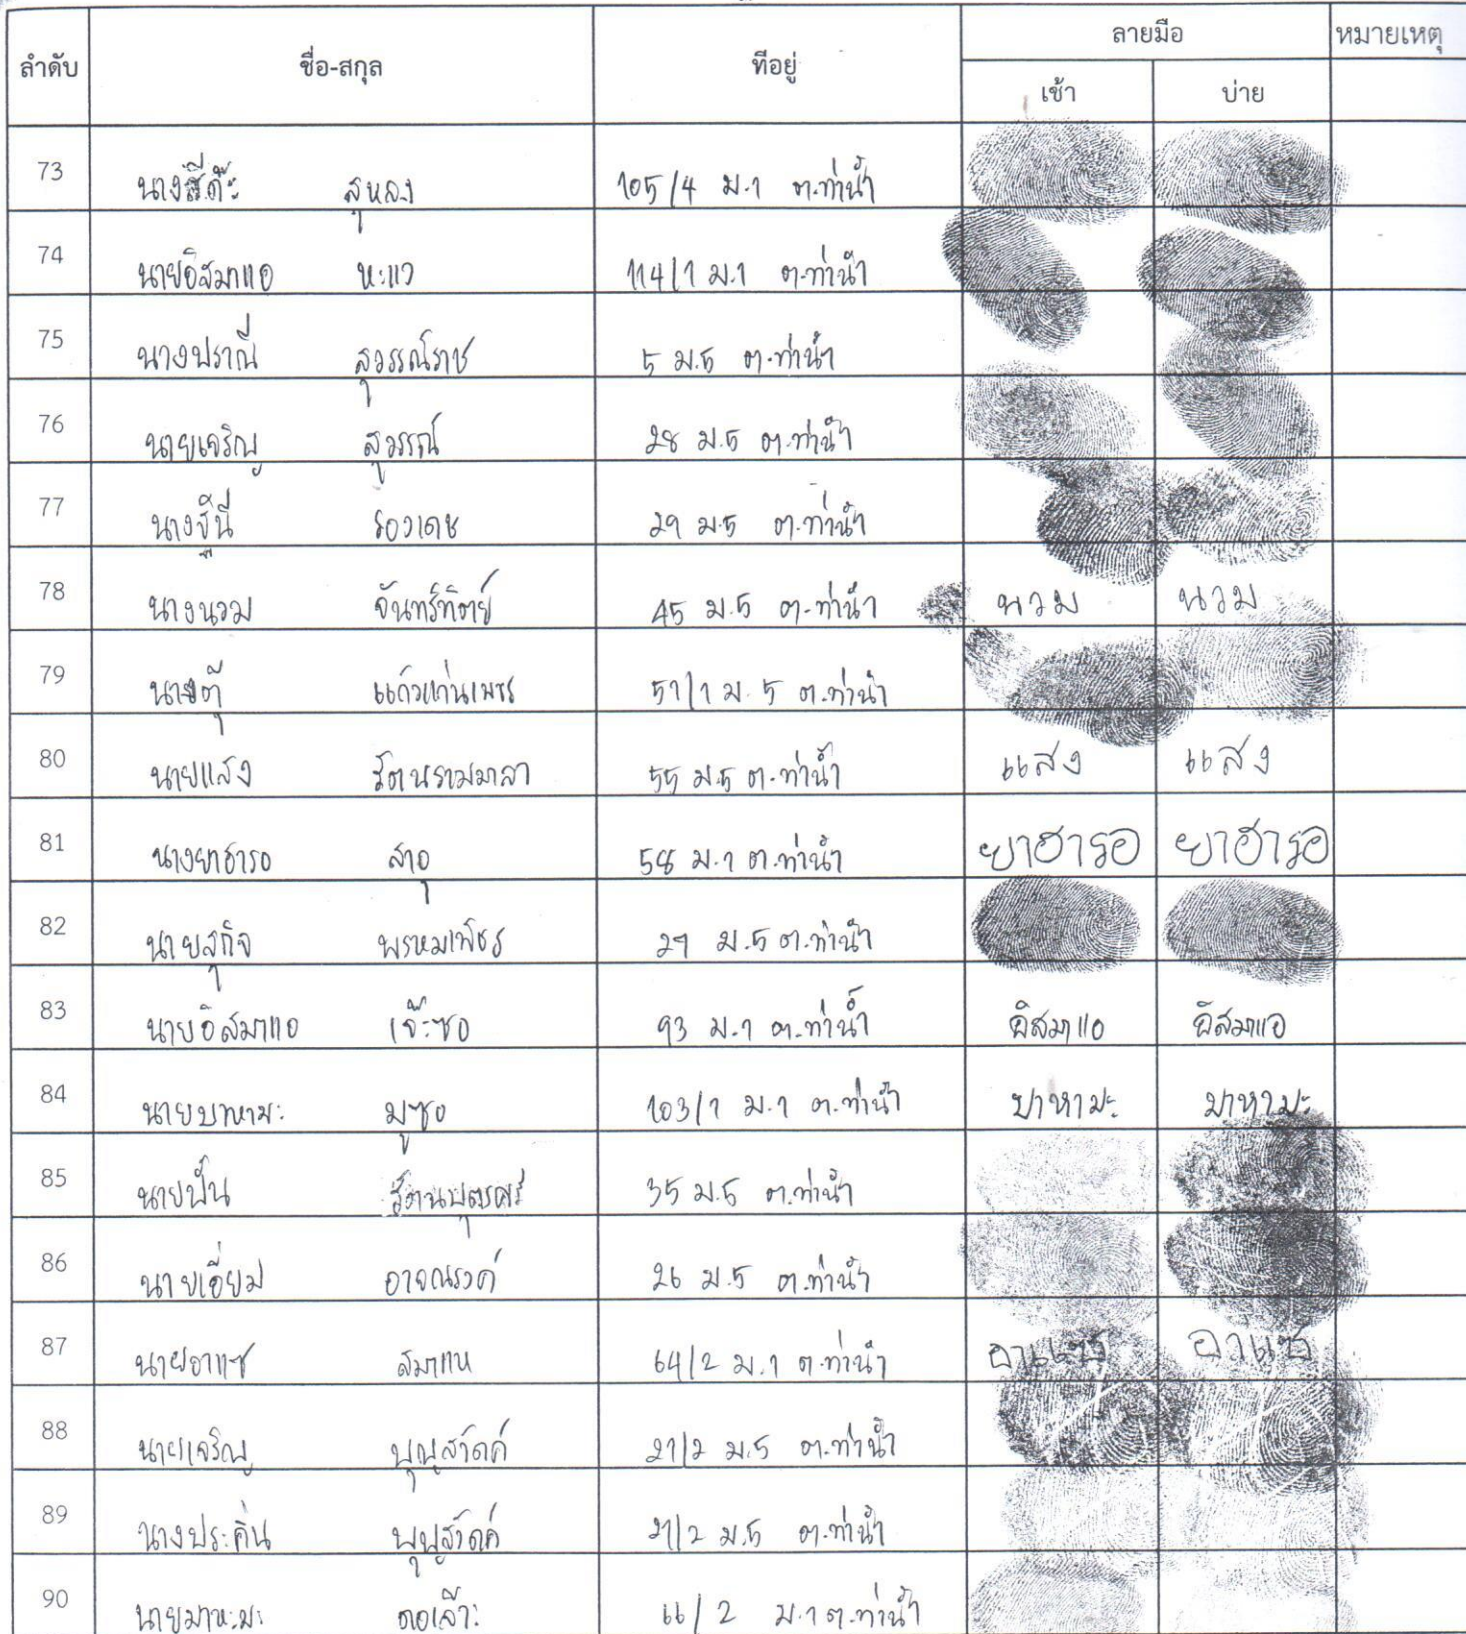 ลำดับ ชื่อ-สกุล ที่อยู่ ลายมือ หมายเหตุ
เช้า บ่าย
73 นางสีต๊ะ สุหลง 105/4 ม.1 ต.ท่าน้ำ
74 นายอิสมาแอ หะแว 114/1 ม.1 ต.ท่าน้ำ
75 นางปราณี สุวรรณ์ราช 5 ม.5 ต.ท่าน้ำ
76 นายเจริญ สุวรรณ์ 28 ม.5 ต.ท่าน้ำ
77 รองเดช 29 ม.5 ต.ท่าน้ำ
78 นางนวม จันทร์ทิตย์ 45 ม.5 ต.ท่าน้ำ นวม นวม
79 นางตุ๊ แก้วแก่นเพชร 51/1 ม.5 ต.ท่าน้ำ
80 นายแสง 55 ม.5 ต.ท่าน้ำ แสง แสง
81 นางยาฮารอ สาอุ 58 ม.1 ต.ท่าน้ำ ยาฮารอ ยาฮารอ
82 นายสุกิจ พรหมเพ็ชร 29 ม.5 ต.ท่าน้ำ
83 นายอิสมาแอ เจ๊ะซอ 93 ม.1 ต.ท่าน้ำ อิสมาแอ อิสมาแอ
84 นายบาหามะ มูซอ 103/1 ม.1 ต.ท่าน้ำ บาหามะ บาหามะ
85 นายปั้น 35 ม.5 ต.ท่าน้ำ
86 นายเอี่ยม อาจณรงค์ 26 ม.5 ต.ท่าน้ำ
87 นายอาแซ สมาแห 64/2 ม.1 ต.ท่าน้ำ อาแซ อาแซ
88 นายเจริญ บุญสวัดค์ 21/2 ม.5 ต.ท่าน้ำ
89 นางประคิ่น บุญสวัดค์ 21/2 ม.5 ต.ท่าน้ำ
90 นายมาหะมะ ดอเล๊าะ 66/2 ม.1 ต.ท่าน้ำ